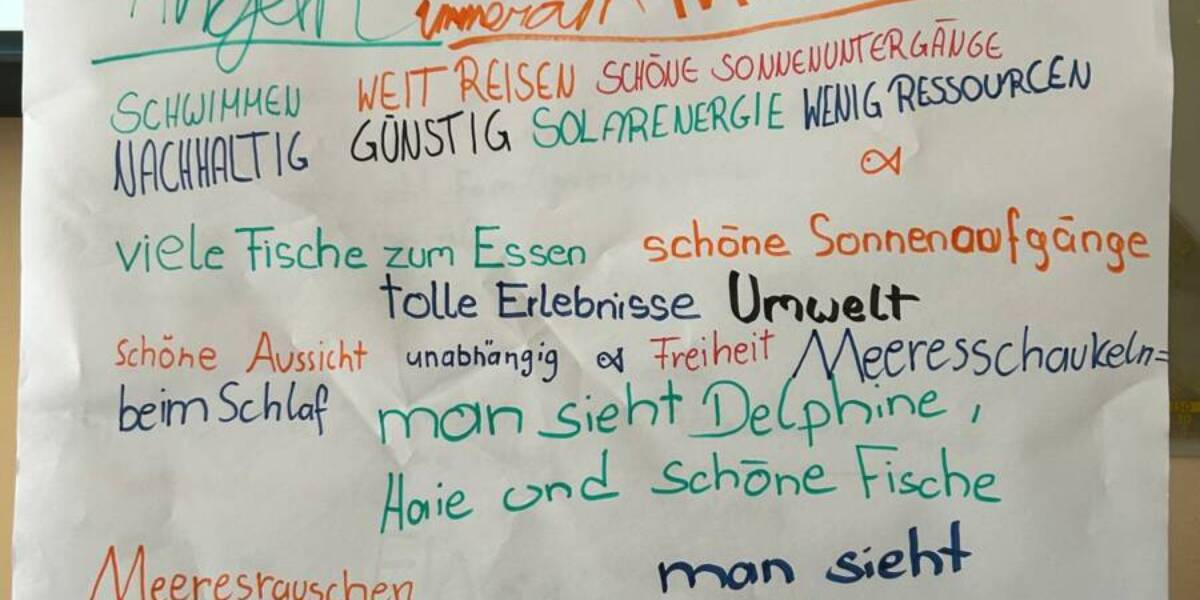 SCHWIMMEN WEIT REISEN SCHÖNE SONNENUNTERGÄNGE
NACHHALTIG GÜNSTIG SOLARENERGIE WENIG RESSOURCEN
viele Fische zum Essen schöne Sonnenaufgänge
tolle Erlebnisse Umwelt
schöne Aussicht unabhängig Freiheit Meeresschaukeln=
beim Schlaf man sieht Delphine,
Haie und schöne Fische
Meeresrauschen man sieht